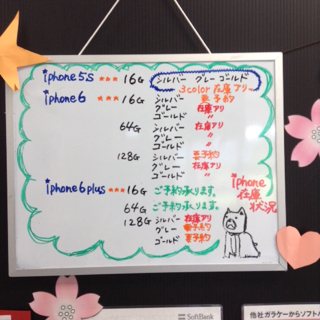 iphone5s *** 16G シルバー グレー ゴールド
3color在庫アリ
iphone6 *** 16G シルバー 要予約
グレー 在庫アリ
ゴールド 〃
64G シルバー 在庫アリ
グレー 〃
ゴールド 〃
128G シルバー 要予約
グレー 在庫アリ
ゴールド 〃
iphone6plus *** 16G ご予約承ります。
64G ご予約承ります。
128G シルバー 在庫アリ
グレー 要予約
ゴールド 要予約
iphone
在庫
状況
SoftBank
他社ガラケーからソフトバ